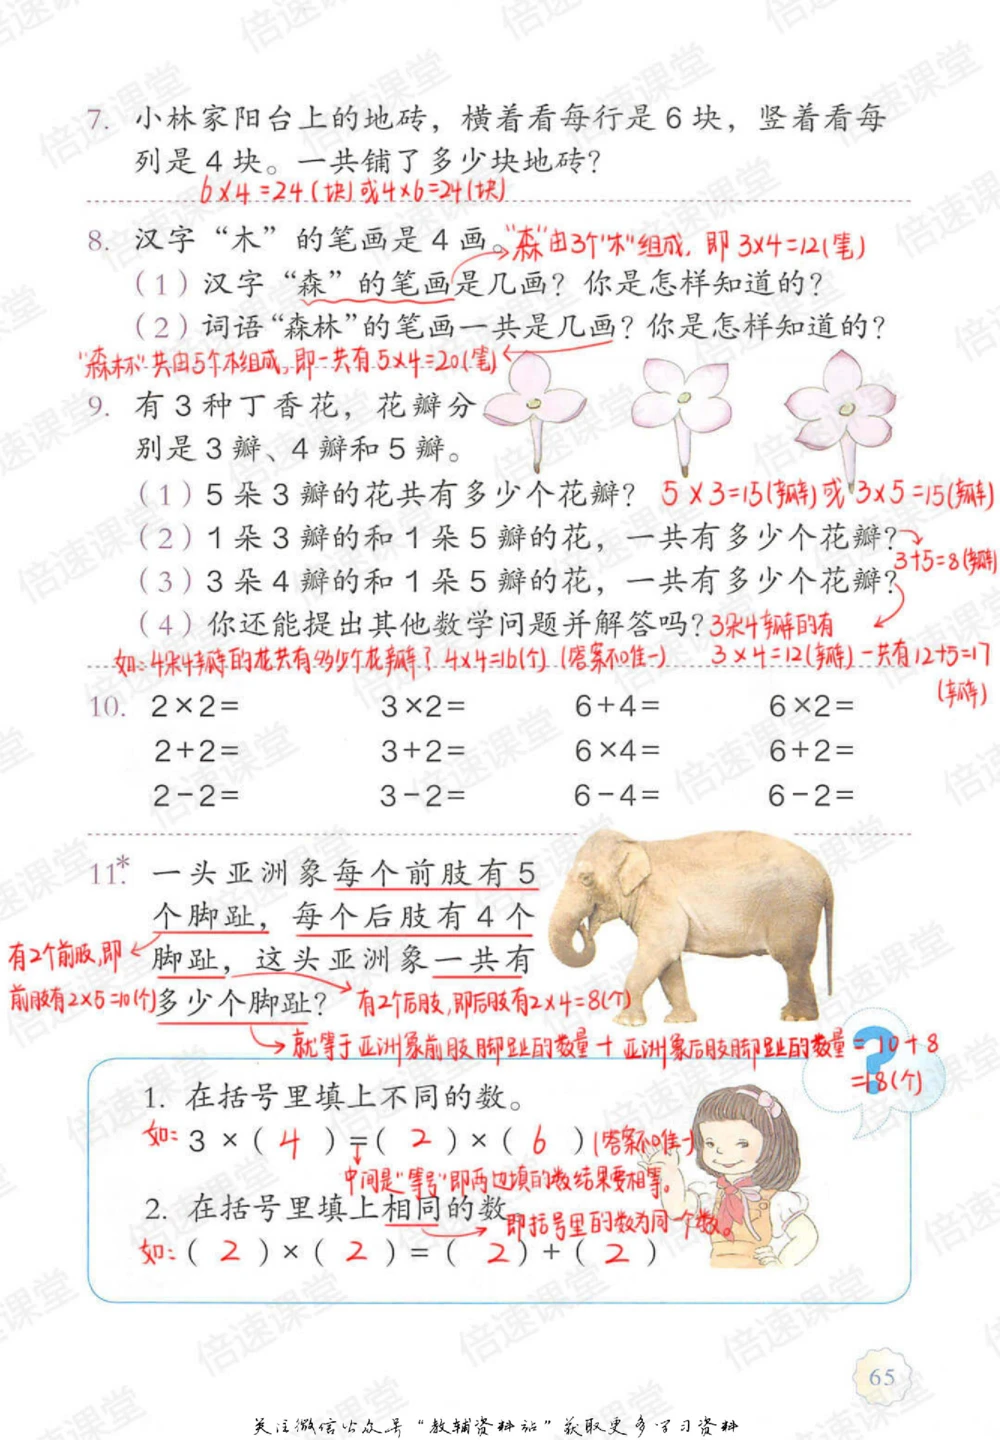 7. 小林家阳台上的地砖，横着看每行是6块，竖着看每
列是4块。一共铺了多少块地砖？
6×4=24(块)或4×6=24(块)
8. 汉字“木”的笔画是4画。
“森”由3个“木”组成，即3×4=12(笔)
(1)汉字“森”的笔画是几画？你是怎样知道的？
(2)词语“森林”的笔画一共是几画？你是怎样知道的？
“森林”共由5个木组成，即一共有5×4=20(笔)
9. 有3种丁香花，花瓣分
别是3瓣、4瓣和5瓣。
(1)5朵3瓣的花共有多少个花瓣？ 5×3=15(瓣)或3×5=15(瓣)
(2)1朵3瓣的和1朵5瓣的花，一共有多少个花瓣？
3+5=8(瓣)
(3)3朵4瓣的和1朵5瓣的花，一共有多少个花瓣？
(4)你还能提出其他数学问题并解答吗？
3朵4瓣的有
3×4=12(瓣)一共有12+5=17
(瓣)
如：4朵4瓣的花共有多少个花瓣？4×4=16(个)(答案不唯一)
10. 2×2= 3×2= 6+4= 6×2=
2+2= 3+2= 6×4= 6+2=
2-2= 3-2= 6-4= 6-2=
11.* 一头亚洲象每个前肢有5
个脚趾，每个后肢有4个
脚趾，这头亚洲象一共有
多少个脚趾？
有2个前肢，即
前肢有2×5=10(个)
有2个后肢，即后肢有2×4=8(个)
就等于亚洲象前肢脚趾的数量+亚洲象后肢脚趾的数量=10+8
=18(个)
?
1. 在括号里填上不同的数。
如：3×(4)=(2)×(6)(答案不唯一)
中间是“等号”即两边填的数结果要相等。
2. 在括号里填上相同的数。
即括号里的数为同一个数。
如：(2)×(2)=(2)+(2)
65
关注微信公众号“教辅资料站”获取更多学习资料
倍速课堂